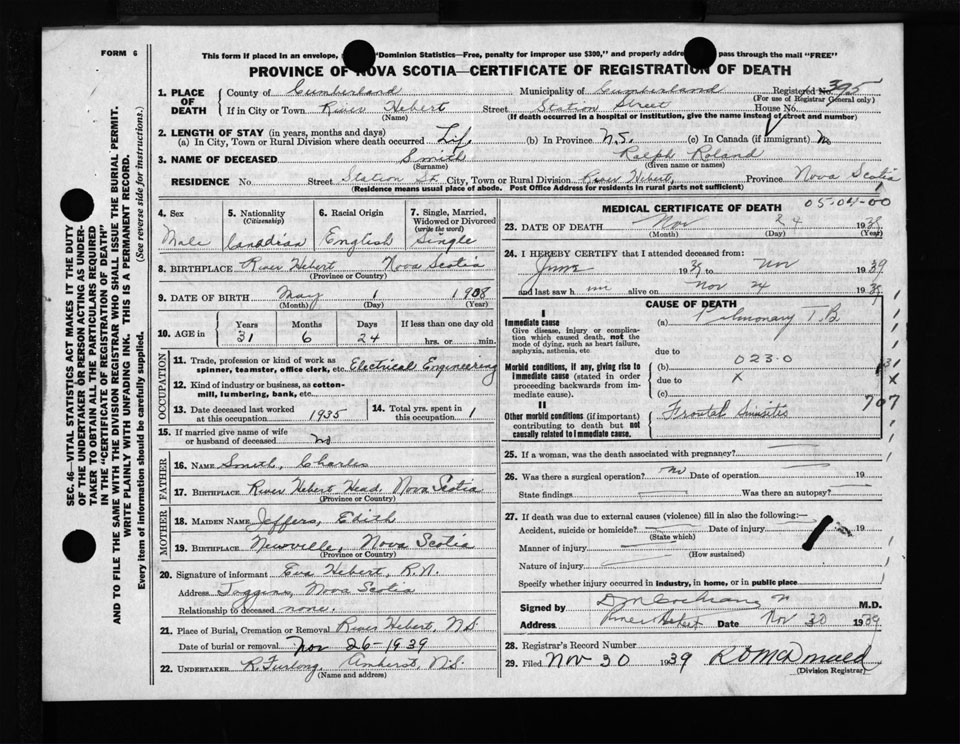 FORM 6
This form if placed in an envelope, "Dominion Statistics—Free, penalty for improper use $300," and properly pass through the mail "FREE"
PROVINCE OF NOVA SCOTIA—CERTIFICATE OF REGISTRATION OF DEATH
1. PLACE OF DEATH County of Cumberland Municipality of Cumberland Registered No. 395
(For use of Registrar General only)
If in City or Town River Hebert Street Station Street House No.
(Name) (If death occurred in a hospital or institution, give the name instead of street and number)
2. LENGTH OF STAY (in years, months and days)
(a) In City, Town or Rural Division where death occurred Life (b) In Province N.S. (c) In Canada (if immigrant) No
3. NAME OF DECEASED Smith Ralph Roland
(Surname) (Given name or names)
RESIDENCE No. Street Station St. City, Town or Rural Division River Hebert, Province Nova Scotia
(Residence means usual place of abode. Post Office Address for residents in rural parts not sufficient)
SEC. 46—VITAL STATISTICS ACT MAKES IT THE DUTY
OF THE UNDERTAKER OR PERSON ACTING AS UNDER-
TAKER TO OBTAIN ALL THE PARTICULARS REQUIRED
IN THE "CERTIFICATE OF REGISTRATION OF DEATH"
AND TO FILE THE SAME WITH THE DIVISION REGISTRAR WHO SHALL ISSUE THE BURIAL PERMIT.
WRITE PLAINLY WITH UNFADING INK. THIS IS A PERMANENT RECORD.
Every item of information should be carefully supplied. (See reverse side for instructions.)
4. Sex Male
5. Nationality (Citizenship) Canadian
6. Racial Origin English
7. Single, Married, Widowed or Divorced (write the word) Single
8. BIRTHPLACE River Hebert Nova Scotia
(Province or Country)
9. DATE OF BIRTH May 1 1908
(Month) (Day) (Year)
10. AGE in Years Months Days If less than one day old
31 6 24 hrs. or min.
OCCUPATION
11. Trade, profession or kind of work as spinner, teamster, office clerk, etc. Electrical Engineering
12. Kind of industry or business, as cotton-mill, lumbering, bank, etc.
13. Date deceased last worked at this occupation 1935 14. Total yrs. spent in this occupation 1
15. If married give name of wife or husband of deceased no
FATHER
16. NAME Smith, Charles
17. BIRTHPLACE River Hebert Head, Nova Scotia
(Province or Country)
MOTHER
18. MAIDEN NAME Jeffers, Edith
19. BIRTHPLACE Newville, Nova Scotia
(Province or Country)
20. Signature of informant Eva Hebert, R.N.
Address Joggins, Nova Scotia
Relationship to deceased none.
21. Place of Burial, Cremation or Removal River Hebert, N.S.
Date of burial or removal Nov 26-1939
22. UNDERTAKER R. Furlong, Amherst, N.S.
(Name and address)
MEDICAL CERTIFICATE OF DEATH 05-04-00
23. DATE OF DEATH Nov 24 1939
(Month) (Day) (Year)
24. I HEREBY CERTIFY that I attended deceased from:
June 1939 to Nov 1939
and last saw him alive on Nov 24 1939
CAUSE OF DEATH
I
Immediate cause (a) Pulmonary T.B.
Give disease, injury or complication which caused death, not the mode of dying, such as heart failure, asphyxia, asthenia, etc
due to
Morbid conditions, if any, giving rise to immediate cause (stated in order proceeding backwards from immediate cause). (b) 023.0
due to X
(c)
II
Other morbid conditions (if important) contributing to death but not causally related to immediate cause. Frontal Sinusitis 707
25. If a woman, was the death associated with pregnancy?
26. Was there a surgical operation? No Date of operation 19
State findings Was there an autopsy?
27. If death was due to external causes (violence) fill in also the following:—
Accident, suicide or homicide? Date of injury 19
(State which)
Manner of injury
(How sustained)
Nature of injury
Specify whether injury occurred in industry, in home, or in public place
Signed by Cochrane M.D.
Address River Hebert Date Nov 30 1939
28. Registrar's Record Number
29. Filed Nov 30 1939
(Division Registrar)